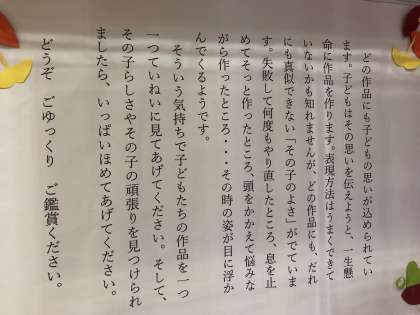 どの作品にも子どもの思いが込められてい
ます。子どもはその思いを伝えようと、一生懸
命に作品を作ります。表現方法はうまくできて
いないかも知れませんが、どの作品にも、だれ
にも真似できない「その子のよさ」がでていま
す。失敗して何度もやり直したところ、息を止
めてそっと作ったところ、頭をかかえて悩みな
がら作ったところ・・・その時の姿が目に浮か
んでくるようです。
そういう気持ちで子どもたちの作品を一つ
一つていねいに見てあげてください。そして、
その子らしさやその子の頑張りを見つけられ
ましたら、いっぱいほめてあげてください。
どうぞ ごゆっくり ご鑑賞ください。